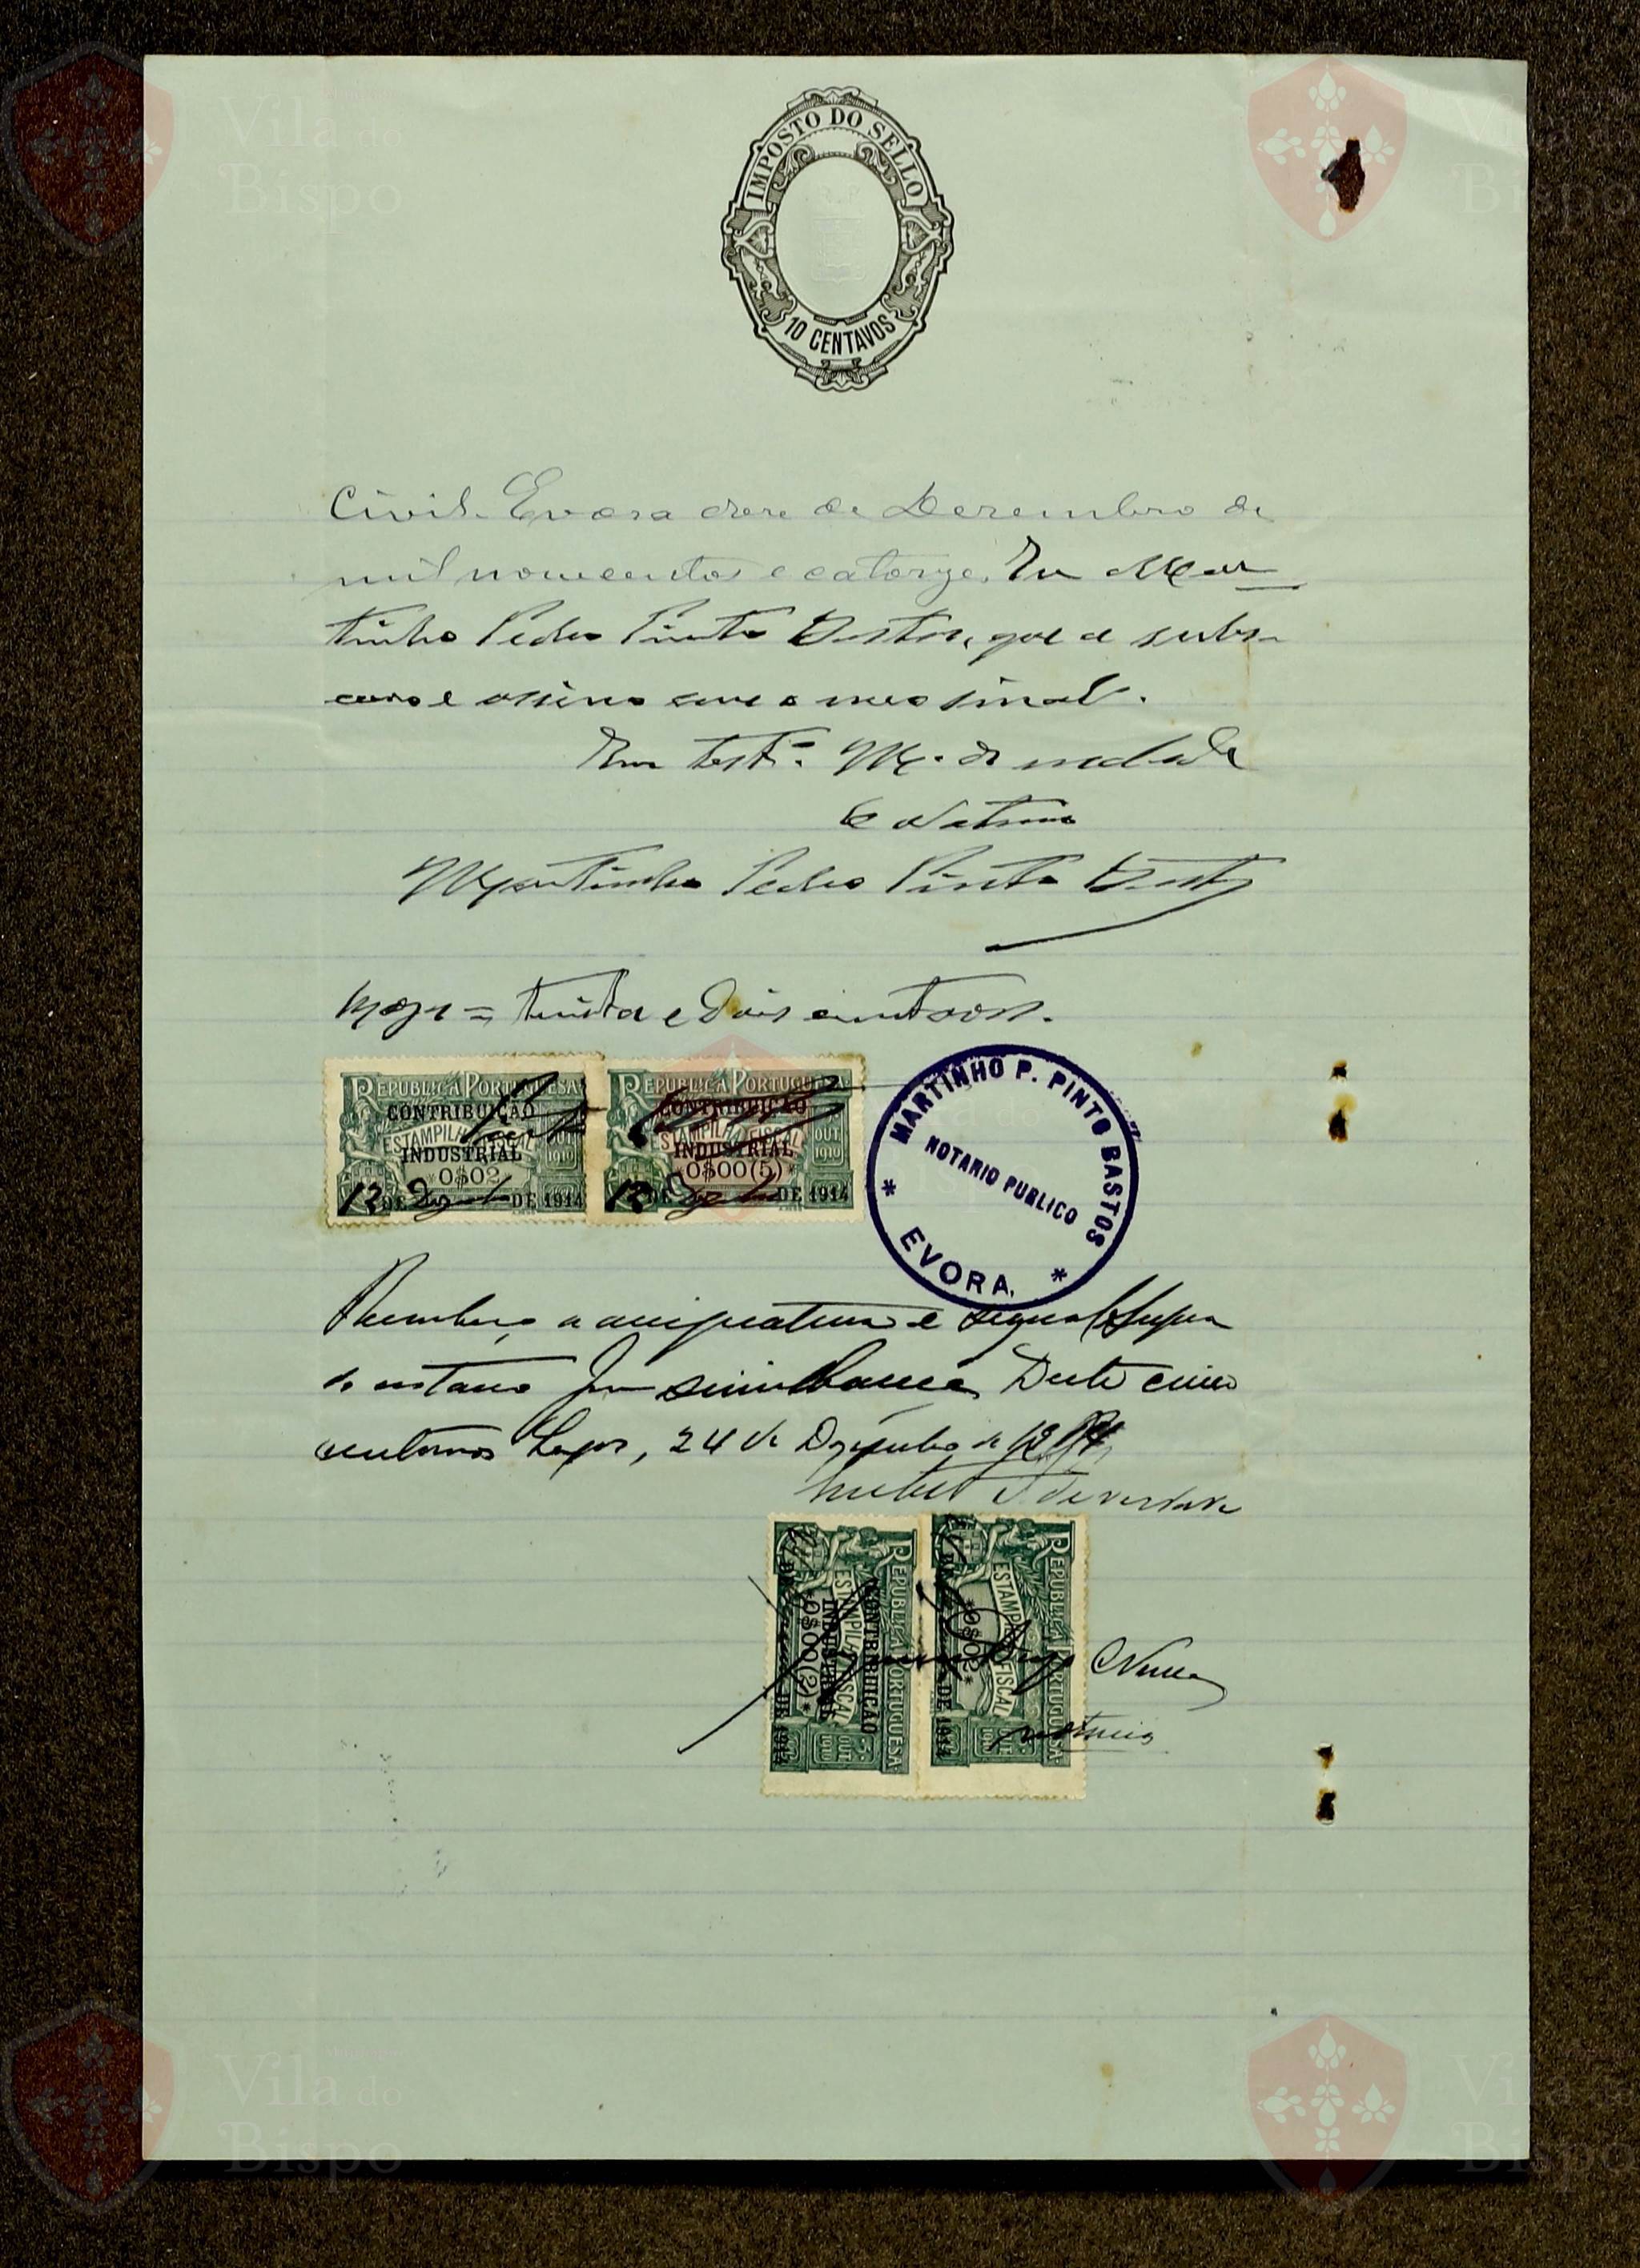 IMPOSTO DO SELLO
10 CENTAVOS
Civil. Evora doze de Dezembro de
mil novecentos e catorze. Eu Mar
tinho Pedro Pinto Bastos, que a subs-
crevo e assino com o meu sinal.
Em test.º M. da verdade
O Notario
Martinho Pedro Pinto Bastos
Pagou = trinta e dois centavos.
REPUBLICA PORTUGUESA
CONTRIBUIÇÃO
ESTAMPILHA FISCAL
INDUSTRIAL
OUT. 1910
0$02
12 DE Dezembro DE 1914
REPUBLICA PORTUGUESA
CONTRIBUIÇÃO
ESTAMPILHA FISCAL
INDUSTRIAL
OUT 1910
0$00(5)
12 DE Dezembro DE 1914
MARTINHO P. PINTO BASTOS
NOTARIO PUBLICO
* EVORA. *
a assignatura e signal supra
do notario por similhança. Deste cinco
centavos Lagos, 24 de Dezembro de 1914
verdade
REPUBLICA PORTUGUESA
CONTRIBUIÇÃO
ESTAMPILHA FISCAL
INDUSTRIAL
*0$00(2)*
DE 1914
REPUBLICA PORTUGUESA
ESTAMPILHA FISCAL
*0$02*
DE 1914
notario
Vila do
Bispo
Vila do
Bispo